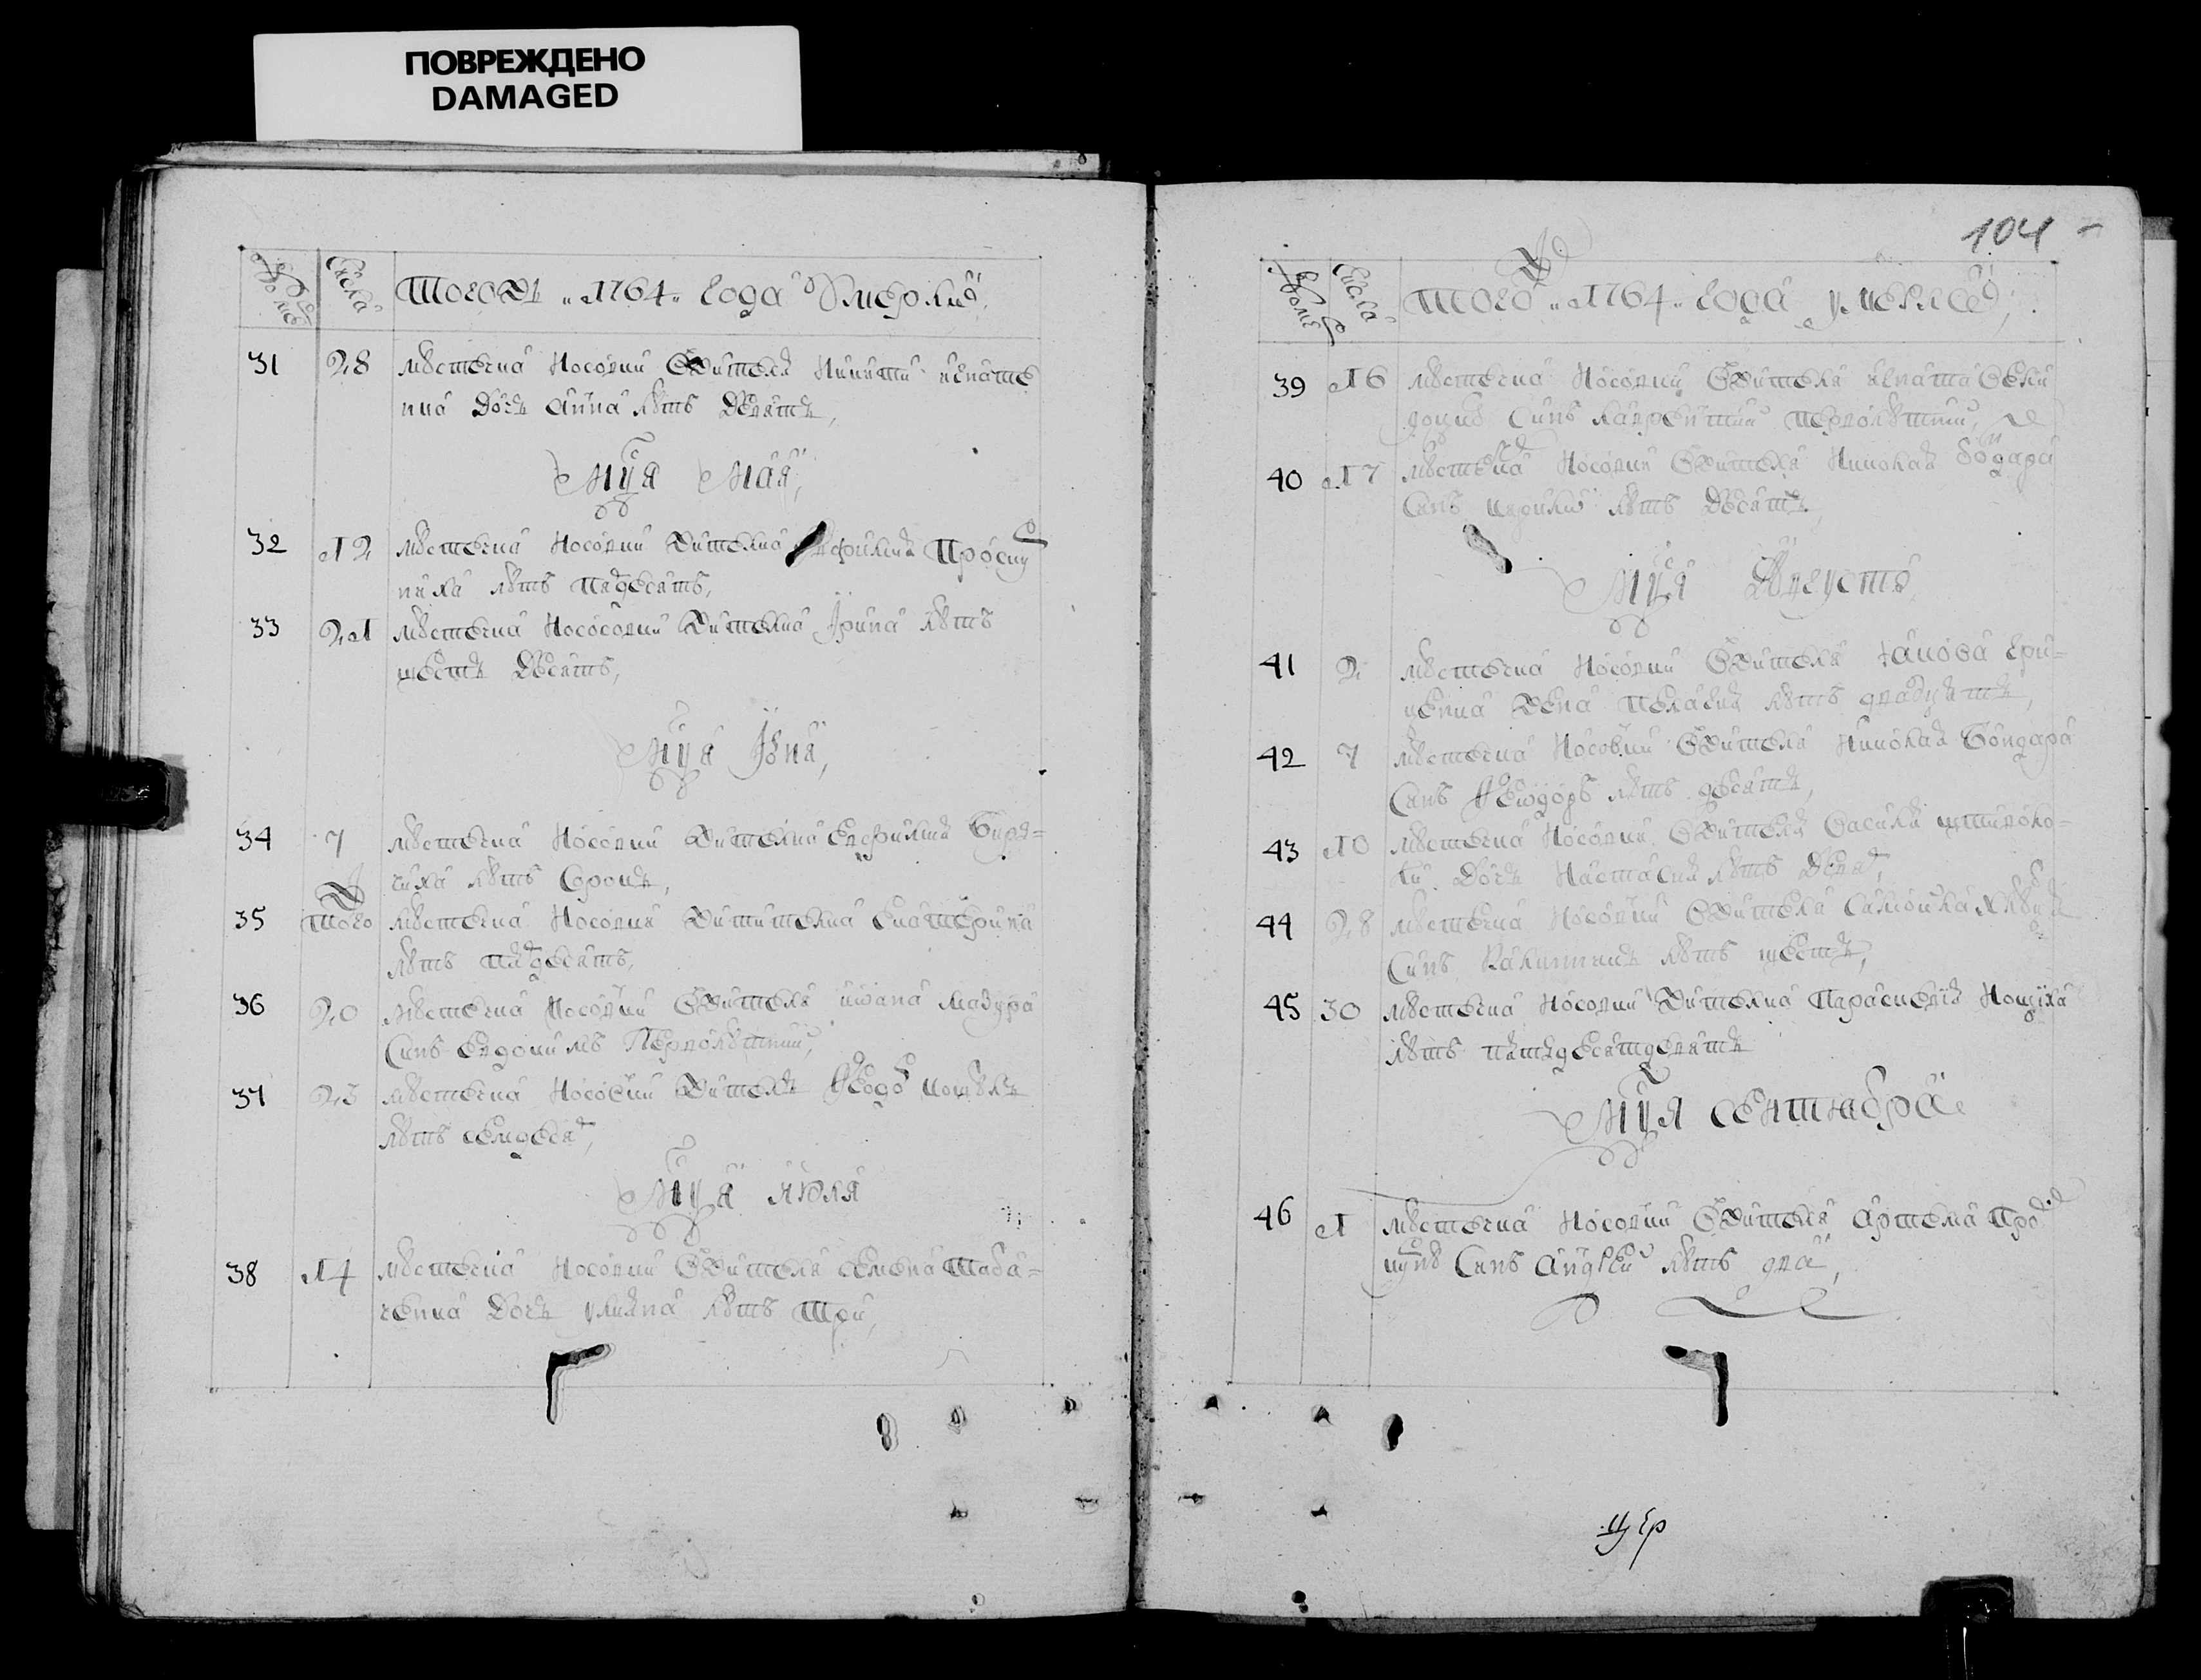 ПОВРЕЖДЕНО
DAMAGED
Числа
Тогожъ 1764 года Умерлыѣ
31 28 мѣстечка Носовки жителя Никити игнате
нка дочь анна лѣтъ девять,
Мц͠а Мая,
32 12 мѣстечка Носовки жителка Евфимия
лѣтъ пядесятъ,
33 21 мѣстечка Нососовки жителка Ірина лѣтъ
шесть десятъ,
Мц͠а Іюня,
34 7 мѣстечка Носовки жителка Евфимия Биря=
чиха лѣтъ Сорокъ,
35 Того мѣстечка Носовки жительтелка Екатерина
лѣтъ пядесятъ,
36 20 мѣстечка Носовки жителя ивана мазура
Синъ Евдокимъ Перволѣтний,
37 23 мѣстечка Носовки жителъ Ѳеодо
лѣтъ семдеся,
Мц͠а июля
38 14 мѣстечка Носовки жителя семена Таба=
ченка дочь улияна лѣтъ три,
104
Числа
Того 1764 года умерлыѣ,
39 16 мѣстечка Носовки жителя игната
Синъ лаврентий перволѣтний,
40 17 мѣстечка Носовки жителя Николая бодара
Синъ Кирило лѣтъ десять,
Мц͠а Августъ
41 2 мѣстечка Носовки жителя Якова Гри=
ценка жена пелагия лѣтъ двадцять,
42 7 мѣстечка Носовки жителя Николая Бондара
Синъ Ѳеѡдоръ лѣтъ десять,
43 10 мѣстечка Носовки жителя василя
дочь Настасия лѣтъ девя,
44 28 мѣстечка Носовки жителя самойла
Синъ лѣтъ шесть,
45 30 мѣстечка Носовки жителка Параскевія Нощіха
лѣтъ пятьдесятдевять
Мц͠а сентября
46 1 мѣстечка Носовки жителя артема
Синъ андрей лѣтъ два,